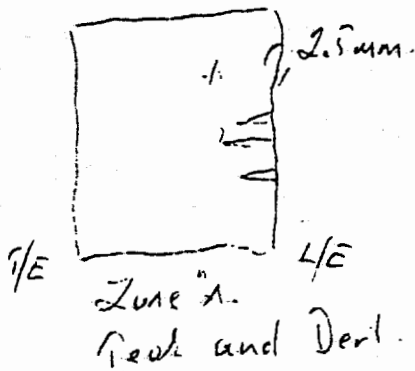 2.5mm.
T/E L/E
Zone "A.
Tear and Dent.